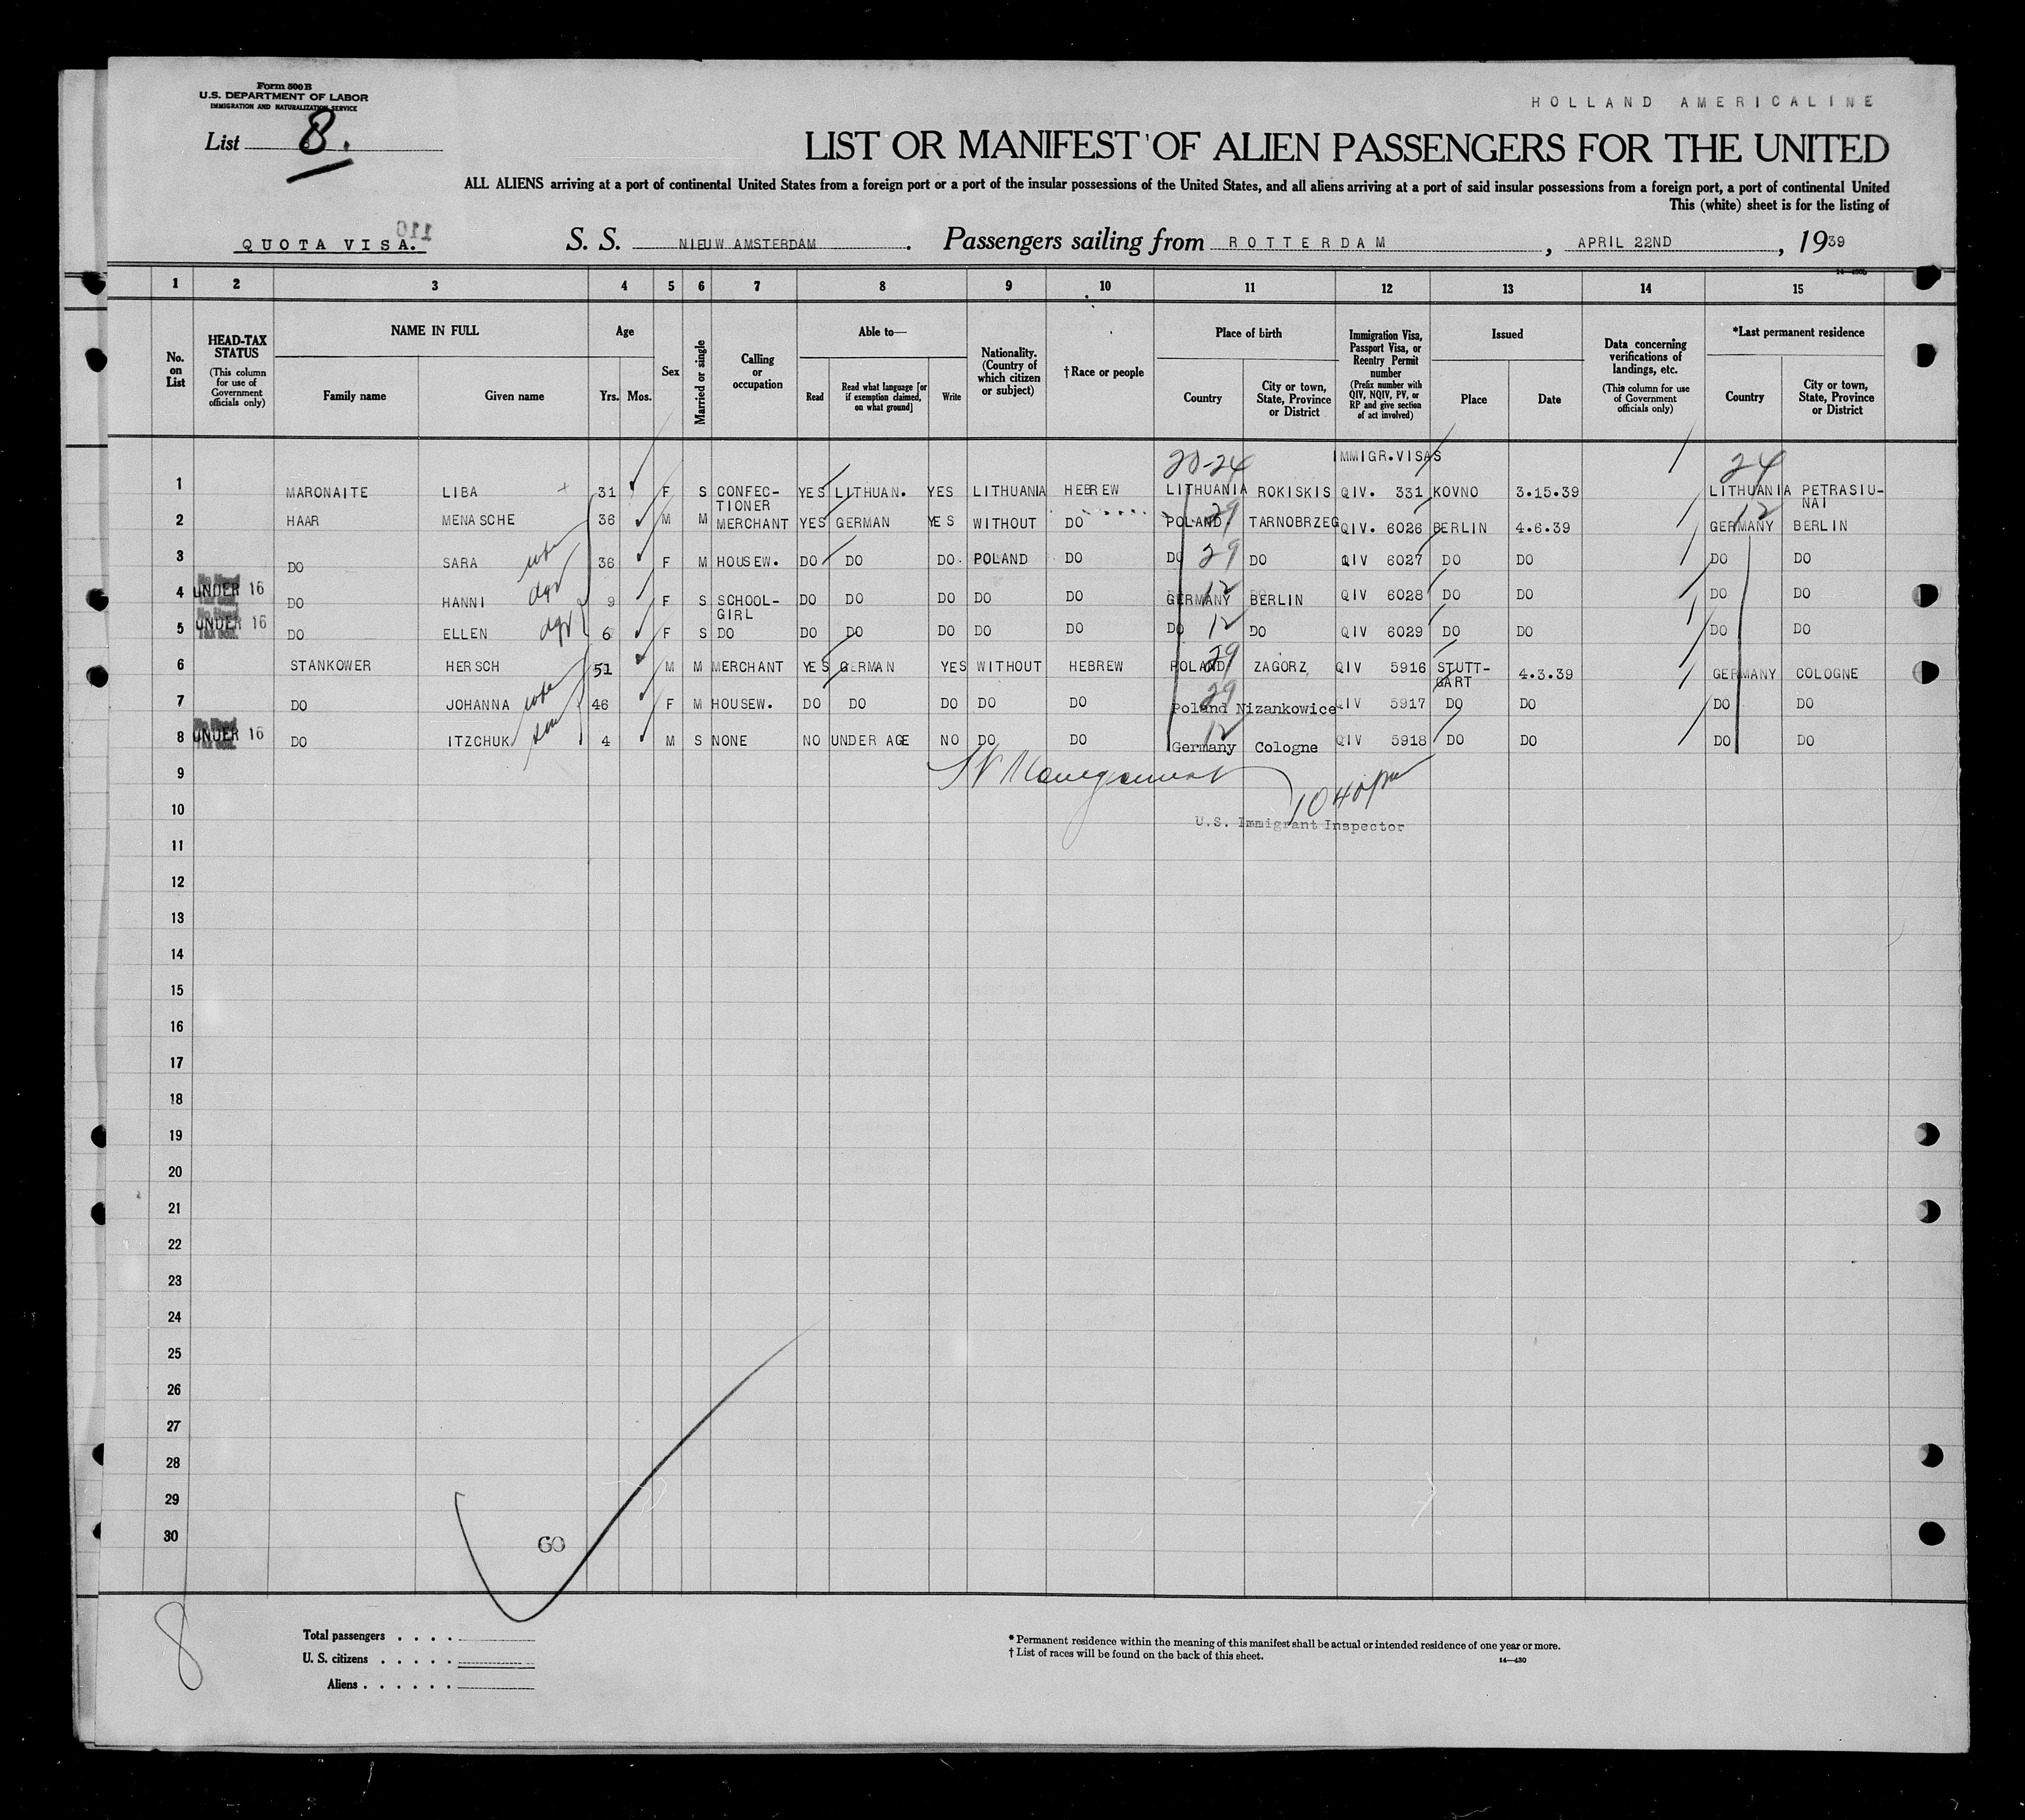 Form 500B
U.S. DEPARTMENT OF LABOR
IMMIGRATION AND NATURALIZATION SERVICE
HOLLAND AMERICALINE
List 8.
LIST OR MANIFEST OF ALIEN PASSENGERS FOR THE UNITED
ALL ALIENS arriving at a port of continental United States from a foreign port or a port of the insular possessions of the United States, and all aliens arriving at a port of said insular possessions from a foreign port, a port of continental United
This (white) sheet is for the listing of
110
QUOTA VISA. S. S. NIEUW AMSTERDAM. Passengers sailing from ROTTERDAM, APRIL 22ND, 1939
1 2 3 4 5 6 7 8 9 10 11 12 13 14 15
No. on List
HEAD-TAX STATUS (This column for use of Government officials only)
NAME IN FULL Family name Given name
Age Yrs. Mos.
Sex
Married or single
Calling or occupation
Able to— Read Read what language [or if exemption claimed, on what ground] Write
Nationality. (Country of which citizen or subject)
†Race or people
Place of birth Country City or town, State, Province or District
Immigration Visa, Passport Visa, or Reentry Permit number (Prefix number with QIV, NQIV, PV, or RP and give section of act involved)
Issued Place Date
Data concerning verifications of landings, etc. (This column for use of Government officials only)
*Last permanent residence Country City or town, State, Province or District
20-24 IMMIGR.VISAS 24
1 MARONAITE LIBA 31 F S CONFECTIONER YES LITHUAN. YES LITHUANIA HEBREW LITHUANIA ROKISKIS QIV. 331 KOVNO 3.15.39 LITHUANIA PETRASIUNAI
2 HAAR MENASCHE 36 M M MERCHANT YES GERMAN YES WITHOUT DO POLAND 29 TARNOBRZEG QIV. 6026 BERLIN 4.6.39 GERMANY 12 BERLIN
3 DO SARA wife 36 F M HOUSEW. DO DO DO. POLAND DO DO 29 DO QIV 6027 DO DO DO DO
4 No Head Tax Coll. UNDER 16 DO HANNI dgr 9 F S SCHOOL-GIRL DO DO DO DO DO GERMANY 12 BERLIN QIV 6028 DO DO DO DO
5 No Head Tax Coll. UNDER 16 DO ELLEN dgr 6 F S DO DO DO DO DO DO DO 12 DO QIV 6029 DO DO DO DO
6 STANKOWER HERSCH 51 M M MERCHANT YES GERMAN YES WITHOUT HEBREW POLAND 29 ZAGORZ QIV 5916 STUTTGART 4.3.39 GERMANY COLOGNE
7 DO JOHANNA wife 46 F M HOUSEW. DO DO DO DO DO Poland 29 Nizankowice QIV 5917 DO DO DO DO
8 No Head Tax Coll. UNDER 16 DO ITZCHUK son 4 M S NONE NO UNDER AGE NO DO DO Germany 12 Cologne QIV 5918 DO DO DO DO
9
10 10 40 pm
U.S. Immigrant Inspector
11
12
13
14
15
16
17
18
19
20
21
22
23
24
25
26
27
28
29
30
60
8
Total passengers . . . .
U. S. citizens . . . . .
Aliens . . . . . .
* Permanent residence within the meaning of this manifest shall be actual or intended residence of one year or more.
† List of races will be found on the back of this sheet.
14—430